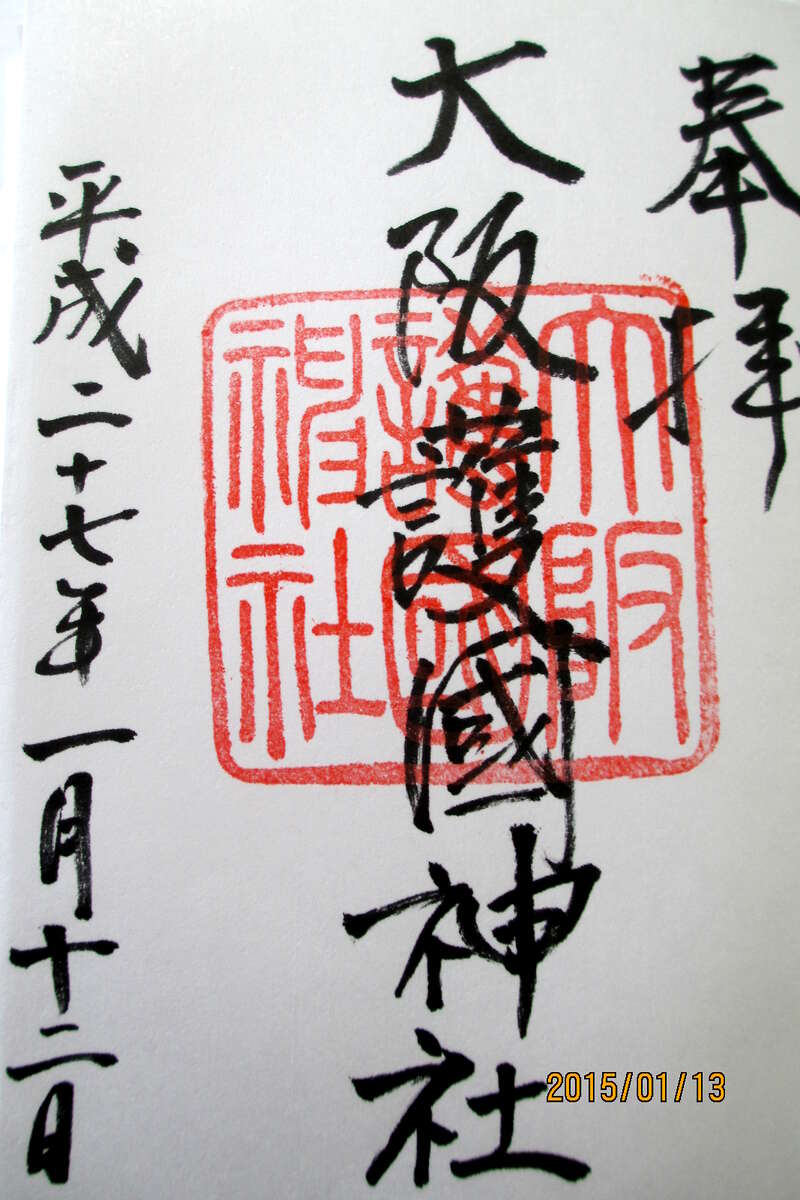 奉拝
大阪護國神社
大阪護国神社
平成二十七年一月十二日
2015/01/13